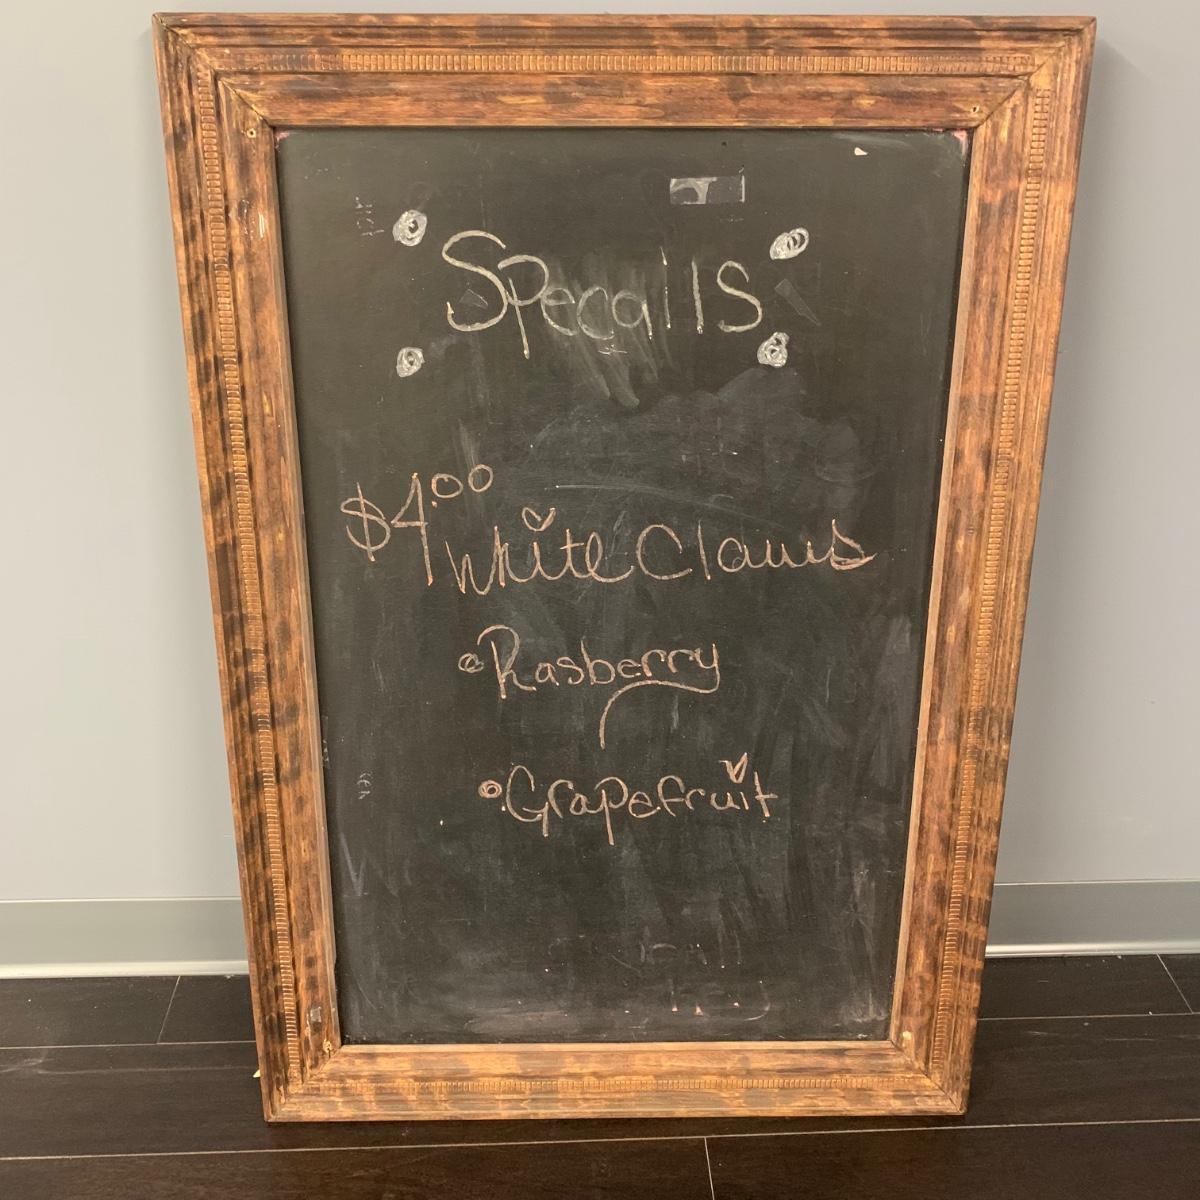 Specalls
$4.00 White Claws
Rasberry
Grapefruit